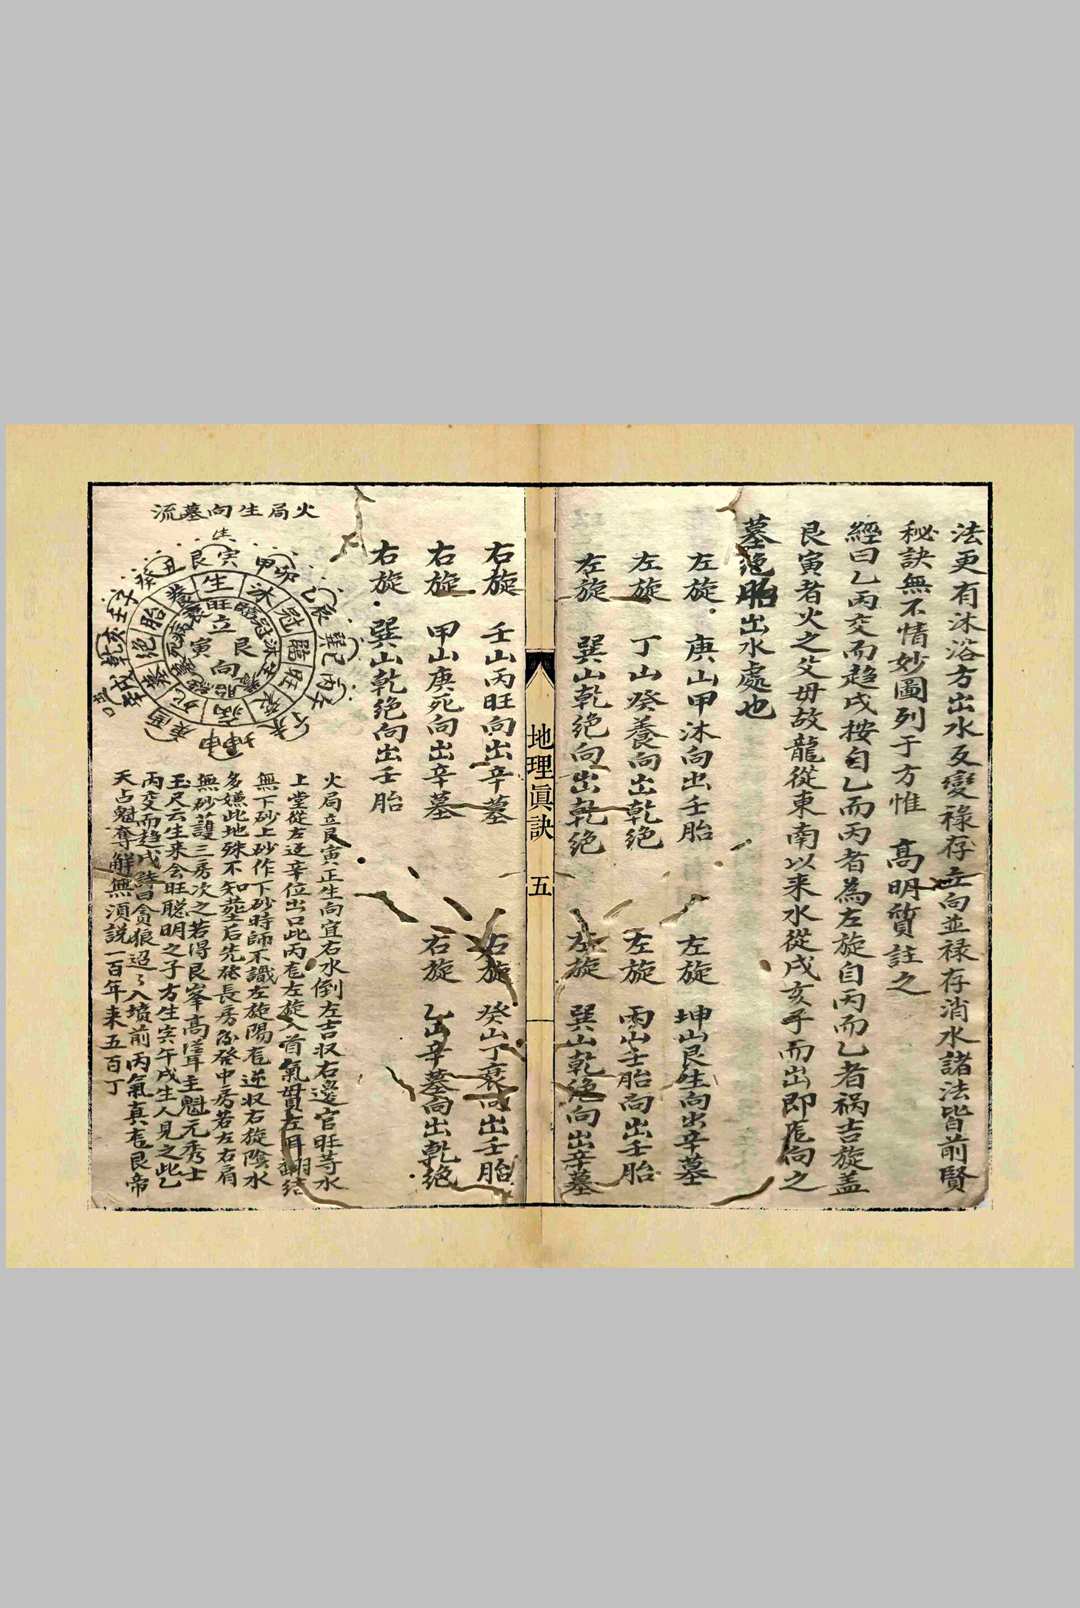 法更有沐浴方出水反變祿存立向並祿存消水諸法皆前賢
秘訣無不情妙圖列于方惟 高明質註之
經曰乙丙交而趨戌按自乙而丙者為左旋自丙而乙者祸吉旋盖
艮寅者火之父毋故龍從東南以来水從戌亥乎而出即庑向之
墓绝胎出水處也
左旋 庚山甲沐向出壬胎
左旋 坤山艮生向出辛墓
左旋 丁山癸養向出乾绝
左旋 丙山壬胎向出壬胎
左旋 巽山乾绝向出乾绝
左旋 巽山乾绝向出辛墓
地理眞訣 五
右旋 壬山丙旺向出辛墓
右旋 癸山丁衰向出壬胎
右旋 甲山庚死向出辛墓
右旋 乙山辛墓向出乾绝
右旋 巽山乾绝向出壬胎
火局生向墓流
生
艮寅甲卯乙辰巽巳丙午
坤申
乾亥壬子癸丑
生沐冠臨旺衰病
墓绝胎養
立艮寅向
火局立艮寅正生向宜右水倒左吉収右邊官旺等水
上堂從左逆辛位出口此丙在左旋入首氣貫左耳
無下砂上砂作下砂時師不識左旋陽在逆収右旋陰水
多嫌此地殊不知塟后先發長房後發中房若左右肩
無砂護三房次之若得艮峯高聳主魁元秀士
玉尺云生来会旺聪明之子方生寅午戌生人見之此乙
丙交而趋戌詩曰貪狼迢々入墳前丙氣真在艮帝
天占魁奪解無湏説一百年来五百丁